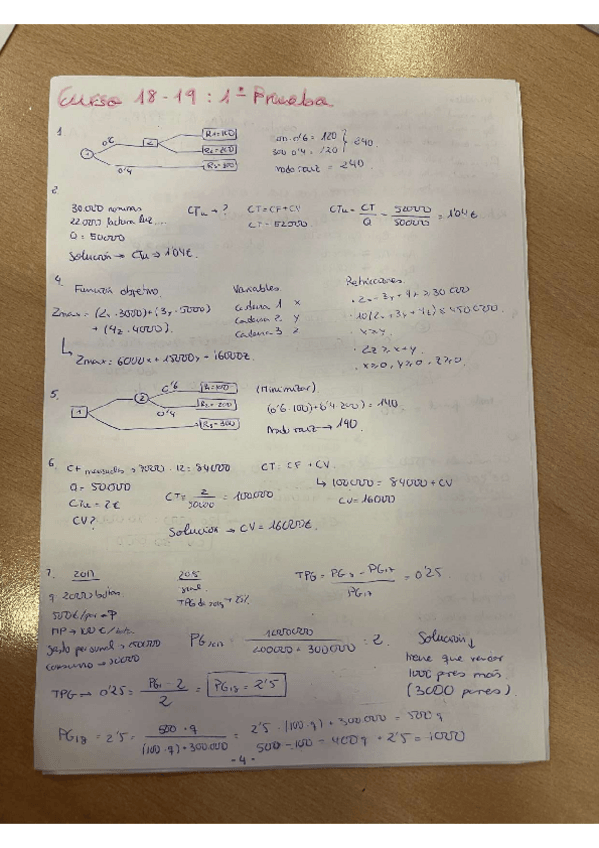 Curso 18-19 : 1ª Prueba
1.
0'6
0'4
2
R3=300
200·0'6 = 120
300·0'4 = 120
240
nodo raiz = 240
2.
30.000 nominas
22.000 factura luz....
Q = 50000
CTu → ?
CT = CF + CV
CT = 52000
CTu = CT / Q = 52000 / 50000 = 1'04€
Solución → CTu → 1'04€.
4.
Función objetivo.
Zmax = (2x·3000)+(3y·5000)
+ (4z·4000).
Zmax = 6000x + 15000y + 16000z.
Variables.
Cadena 1 x
Cadena 2 y
Cadena 3 z
Restricciones.
· 2x + 3y + 4z ≥ 30 000
· 10(2x + 3y + 4z) ≤ 450 000.
· x ≥ y.
· 2z ≥ x+y.
· x≥0, y≥0, z≥0.
5.
1
2
0'6
0'4
R1=100
R2=200
R3=300
(Minimizar)
(0'6·100)+(0'4·200) = 140
Nodo raiz → 140.
6.
CF mensuales → 7000 · 12 = 84000
Q = 50000
CTu = 2€
CV?
= 100000
CT = CF + CV
↳ 100000 = 84000 + CV
CV = 16000
Solución → CV = 16000€.
7.
2017
q = 2000
500€/par
MP → 100€/
gasto personal →
consumo →
2018
TPG = PG18 - PG17 / PG17 = 0'25
PG2017 = 1000000 / 200000 + 300000 = 2
TPG → 0'25 = PG - 2 / 2 = PG18 = 2'5
Solución ↓
tiene que vender
1000 pares más
(3000 pares).
PG18 = 2'5 = 500 · q / (100·q) + 300.000 = 2'5 · (100·q) + 300.000 = 500q
500 - 100 = 400q · 2'5 = 1000
- 4 -